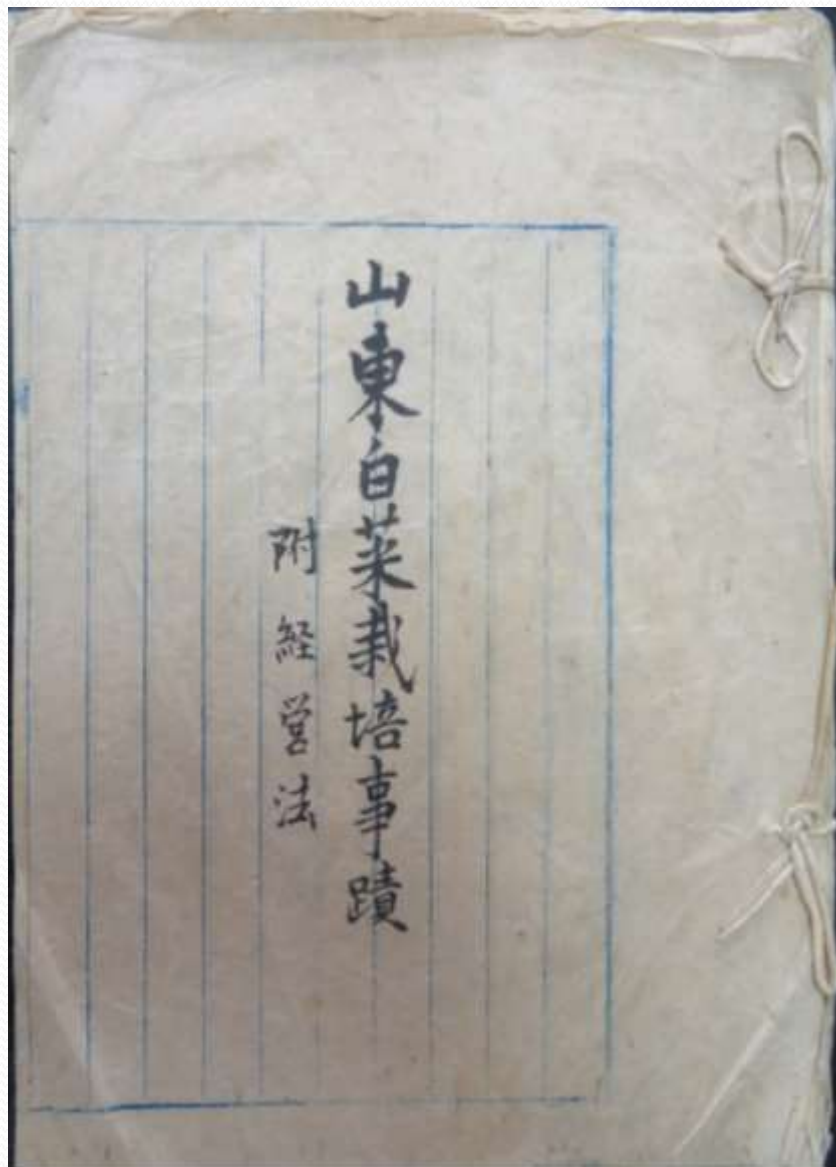 山東白菜栽培事蹟
附経営法